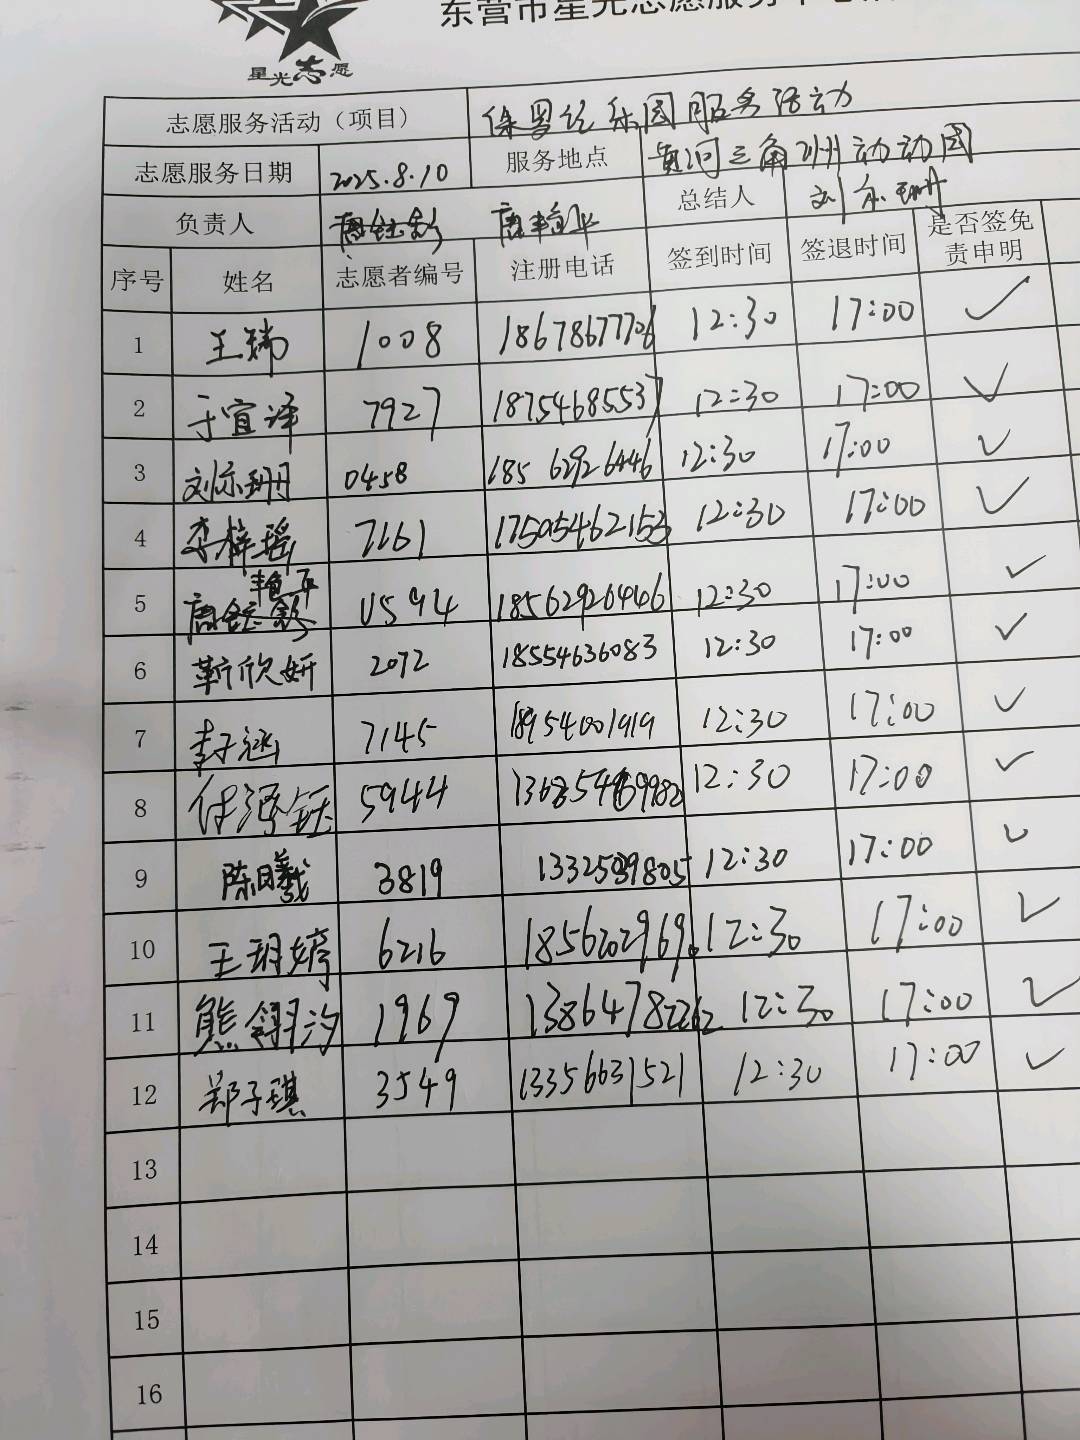 东营市星光志愿服务中心
星光志愿
志愿服务活动（项目） 侏罗纪乐园服务活动
志愿服务日期 2025.8.10 服务地点 黄河三角洲动动园
负责人 唐艳平 总结人 刘亦珊
序号 姓名 志愿者编号 注册电话 签到时间 签退时间 是否签免责申明
1 王瑞 1008 18678677706 12:30 17:00 ✓
2 于宜泽 7927 18754685537 12:30 17:00 ✓
3 刘亦珊 0458 185 62926446 12:30 17:00 ✓
4 李梓瑶 7161 17505462153 12:30 17:00 ✓
5 唐艳平 18562926446 12:30 17:00 ✓
6 靳欣妍 2072 18554636083 12:30 17:00 ✓
7 封涵 7145 18954001919 12:30 17:00 ✓
8 5944 12:30 17:00 ✓
9 陈曦 3819 12:30 17:00 ✓
10 王玥婷 6216 18562029690 12:30 17:00 ✓
11 熊翎汐 1969 13864782262 12:30 17:00 ✓
12 郑子琪 3549 13356631521 12:30 17:00 ✓
13
14
15
16